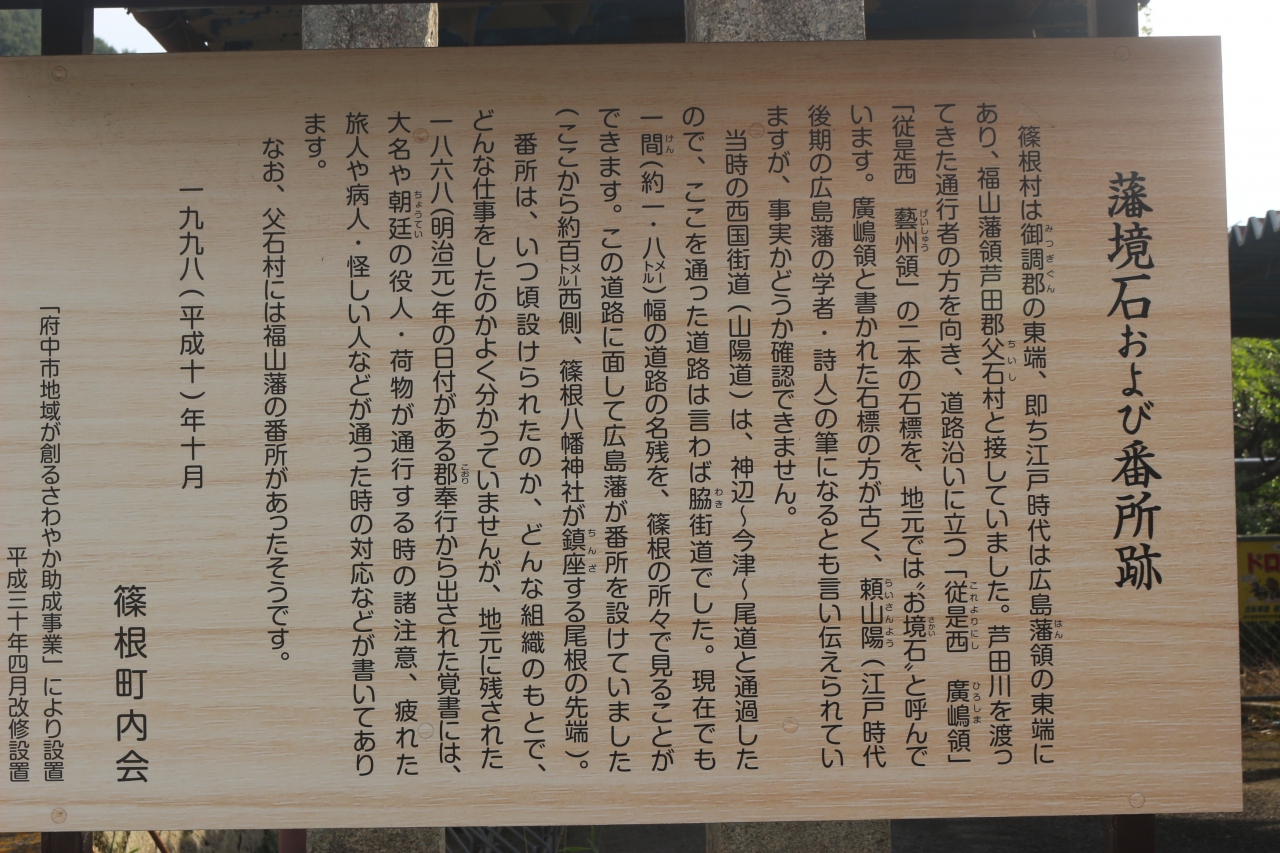 藩境石および番所跡
篠根村は御調郡の東端、即ち江戸時代は広島藩領の東端に
あり、福山藩領芦田郡父石村と接していました。芦田川を渡っ
てきた通行者の方を向き、道路沿いに立つ「従是西　廣嶋領」
「従是西　藝州領」の二本の石標を、地元では〝お境石〟と呼んで
います。廣嶋領と書かれた石標の方が古く、頼山陽（江戸時代
後期の広島藩の学者・詩人）の筆になるとも言い伝えられてい
ますが、事実かどうか確認できません。
当時の西国街道（山陽道）は、神辺〜今津〜尾道と通過した
ので、ここを通った道路は言わば脇街道でした。現在でも
一間（約一・八㍍）幅の道路の名残を、篠根の所々で見ることが
できます。この道路に面して広島藩が番所を設けていました
（ここから約百㍍西側、篠根八幡神社が鎮座する尾根の先端）。
番所は、いつ頃設けられたのか、どんな組織のもとで、
どんな仕事をしたのかよく分かっていませんが、地元に残された
一八六八（明治元）年の日付がある郡奉行から出された覚書には、
大名や朝廷の役人・荷物が通行する時の諸注意、疲れた
旅人や病人・怪しい人などが通った時の対応などが書いてあり
ます。
なお、父石村には福山藩の番所があったそうです。
一九九八（平成十）年十月
篠根町内会
「府中市地域が創るさわやか助成事業」により設置
平成三十年四月改修設置
ドロ